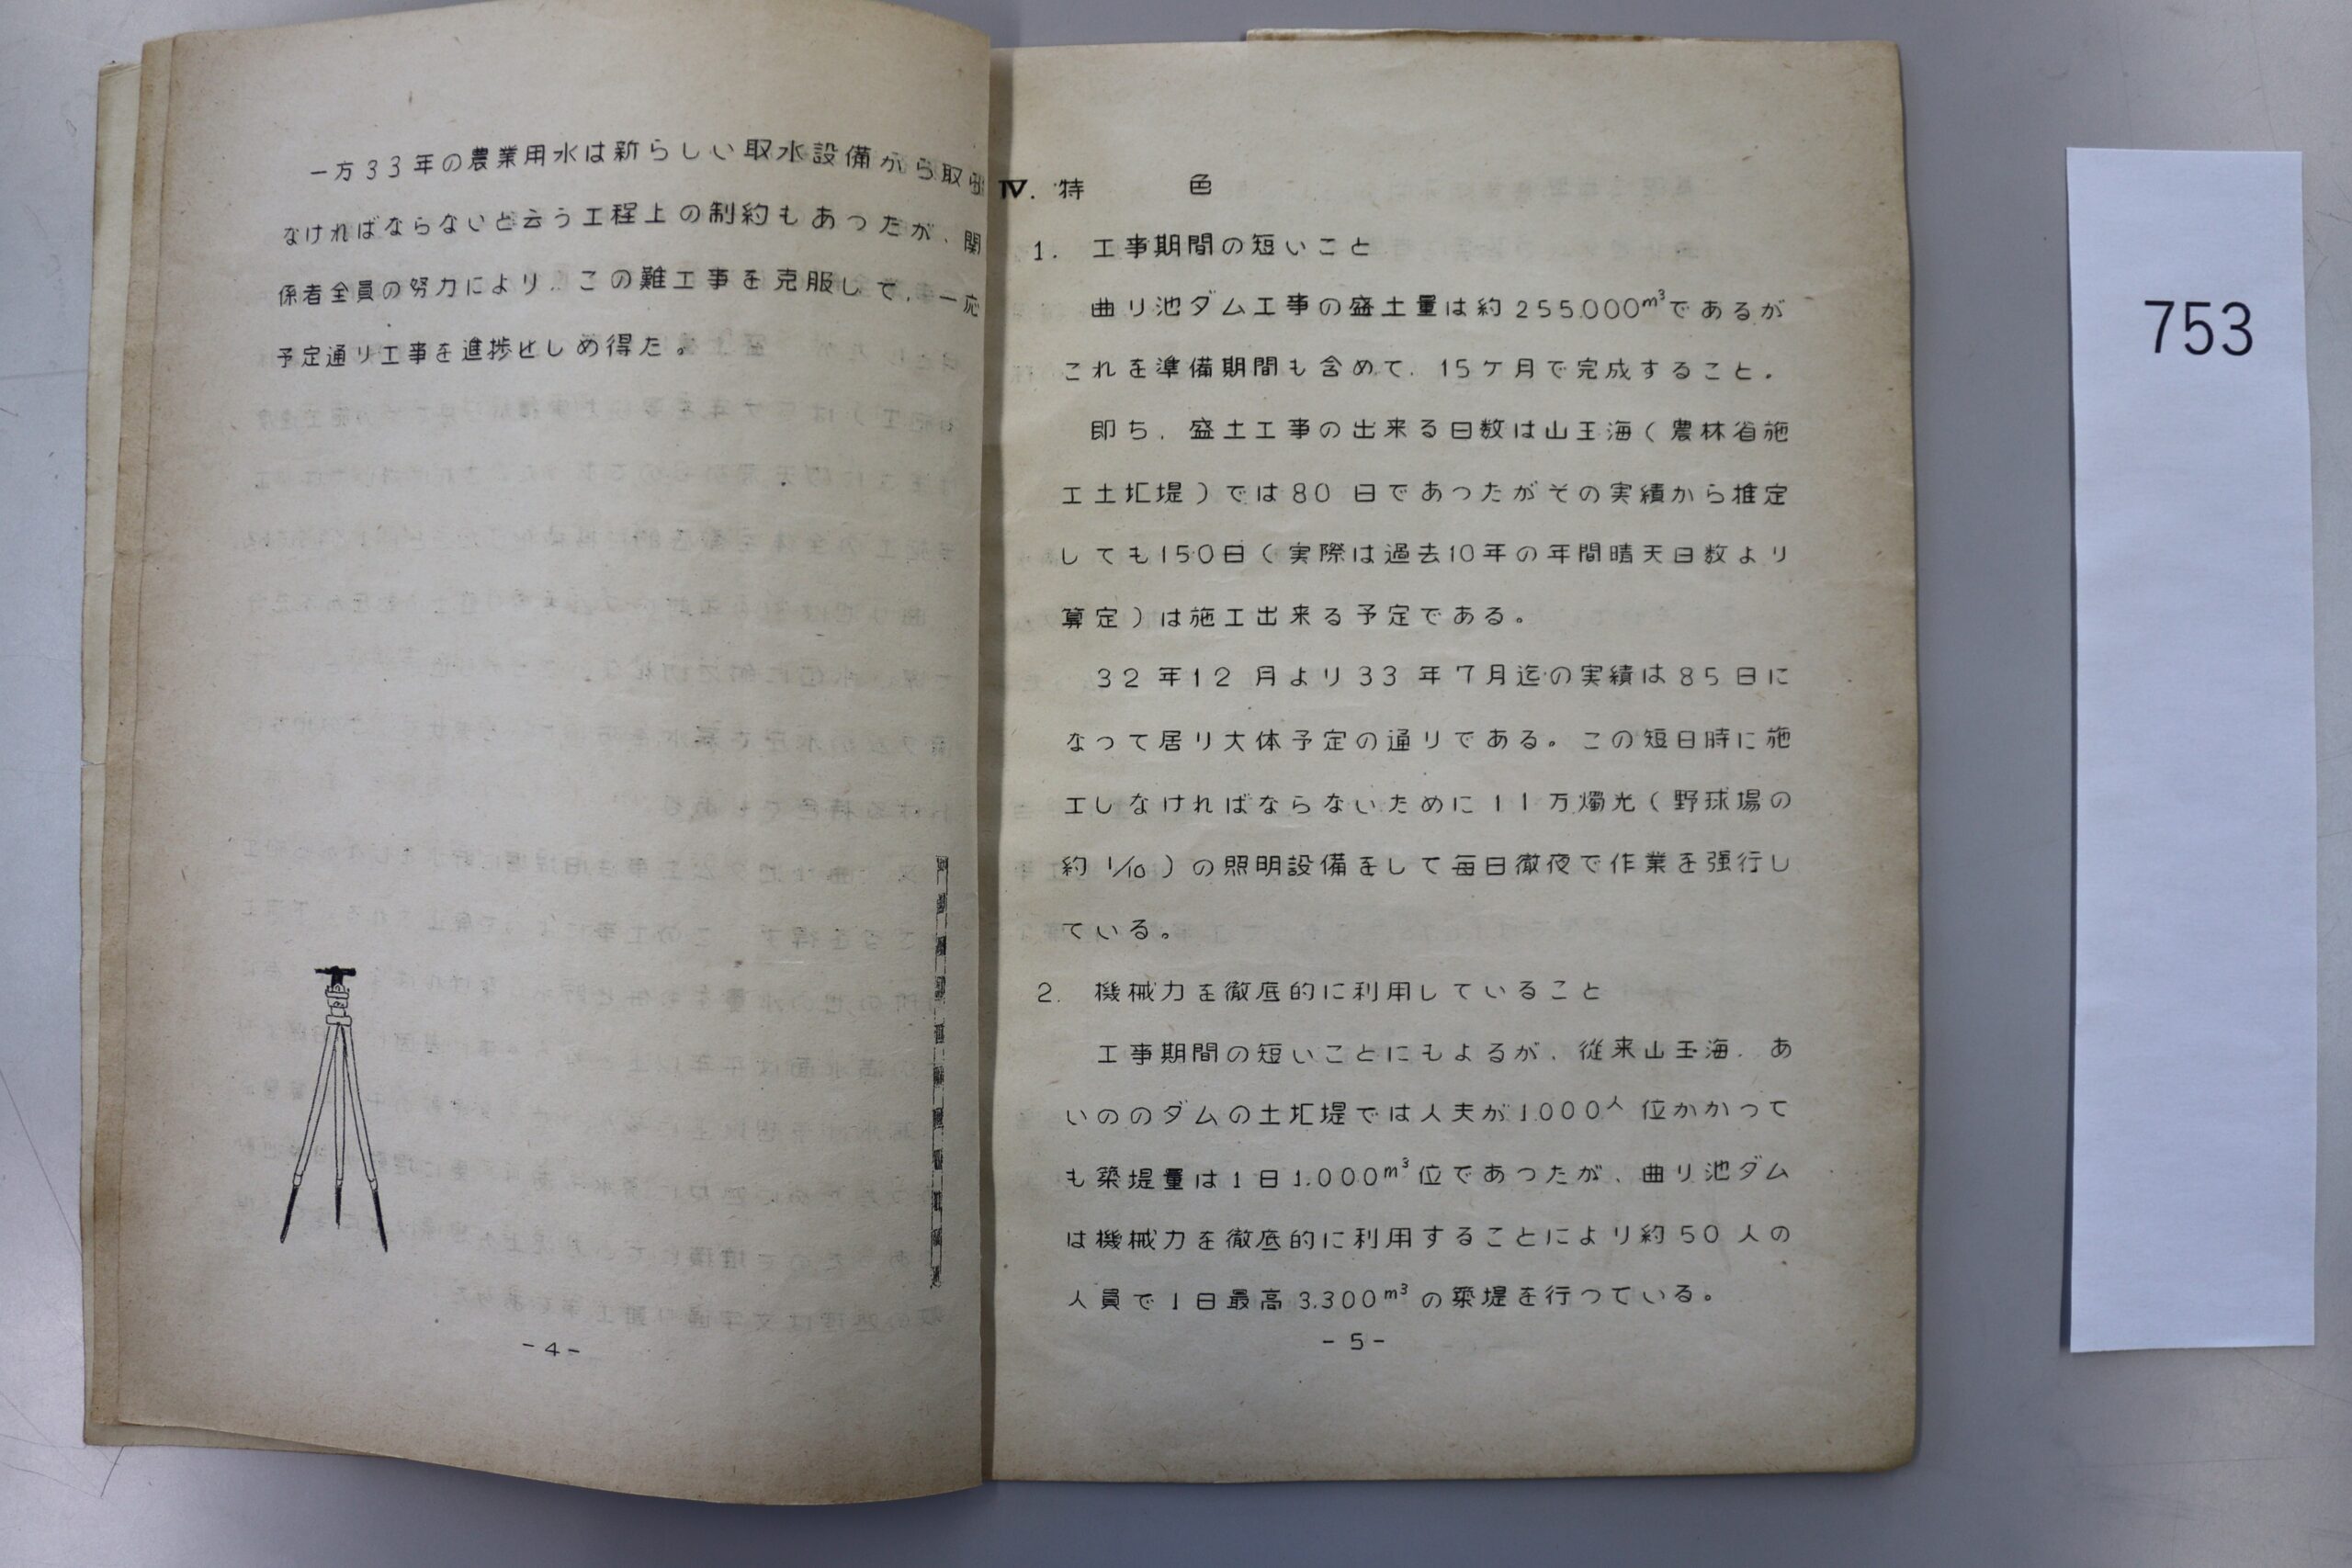 一方33年の農業用水は新らしい取水設備から取得
なければならないと云う工程上の制約もあったが、関
係者全員の努力により、この難工事を克服して、一応
予定通り工事を進捗せしめ得た。
-4-
Ⅳ. 特 色
1. 工事期間の短いこと
曲り池ダム工事の盛土量は約255.000m³であるが
これを準備期間も含めて、15ケ月で完成すること。
即ち、盛土工事の出来る日数は山王海(農林省施
工土圵堤)では80日であったがその実績から推定
しても150日(実際は過去10年の年間晴天日数より
算定)は施工出来る予定である。
32年12月より33年7月迄の実績は85日に
なって居り大体予定の通りである。この短日時に施
工しなければならないために11万燭光(野球場の
約1/10)の照明設備をして毎日徹夜で作業を強行し
ている。
2. 機械力を徹底的に利用していること
工事期間の短いことにもよるが、従来山王海、あ
いののダムの土圵堤では人夫が1.000人位かかって
も築堤量は1日1.000m³位であつたが、曲り池ダム
は機械力を徹底的に利用することにより約50人の
人員で1日最高3.300m³の築堤を行つている。
-5-
753